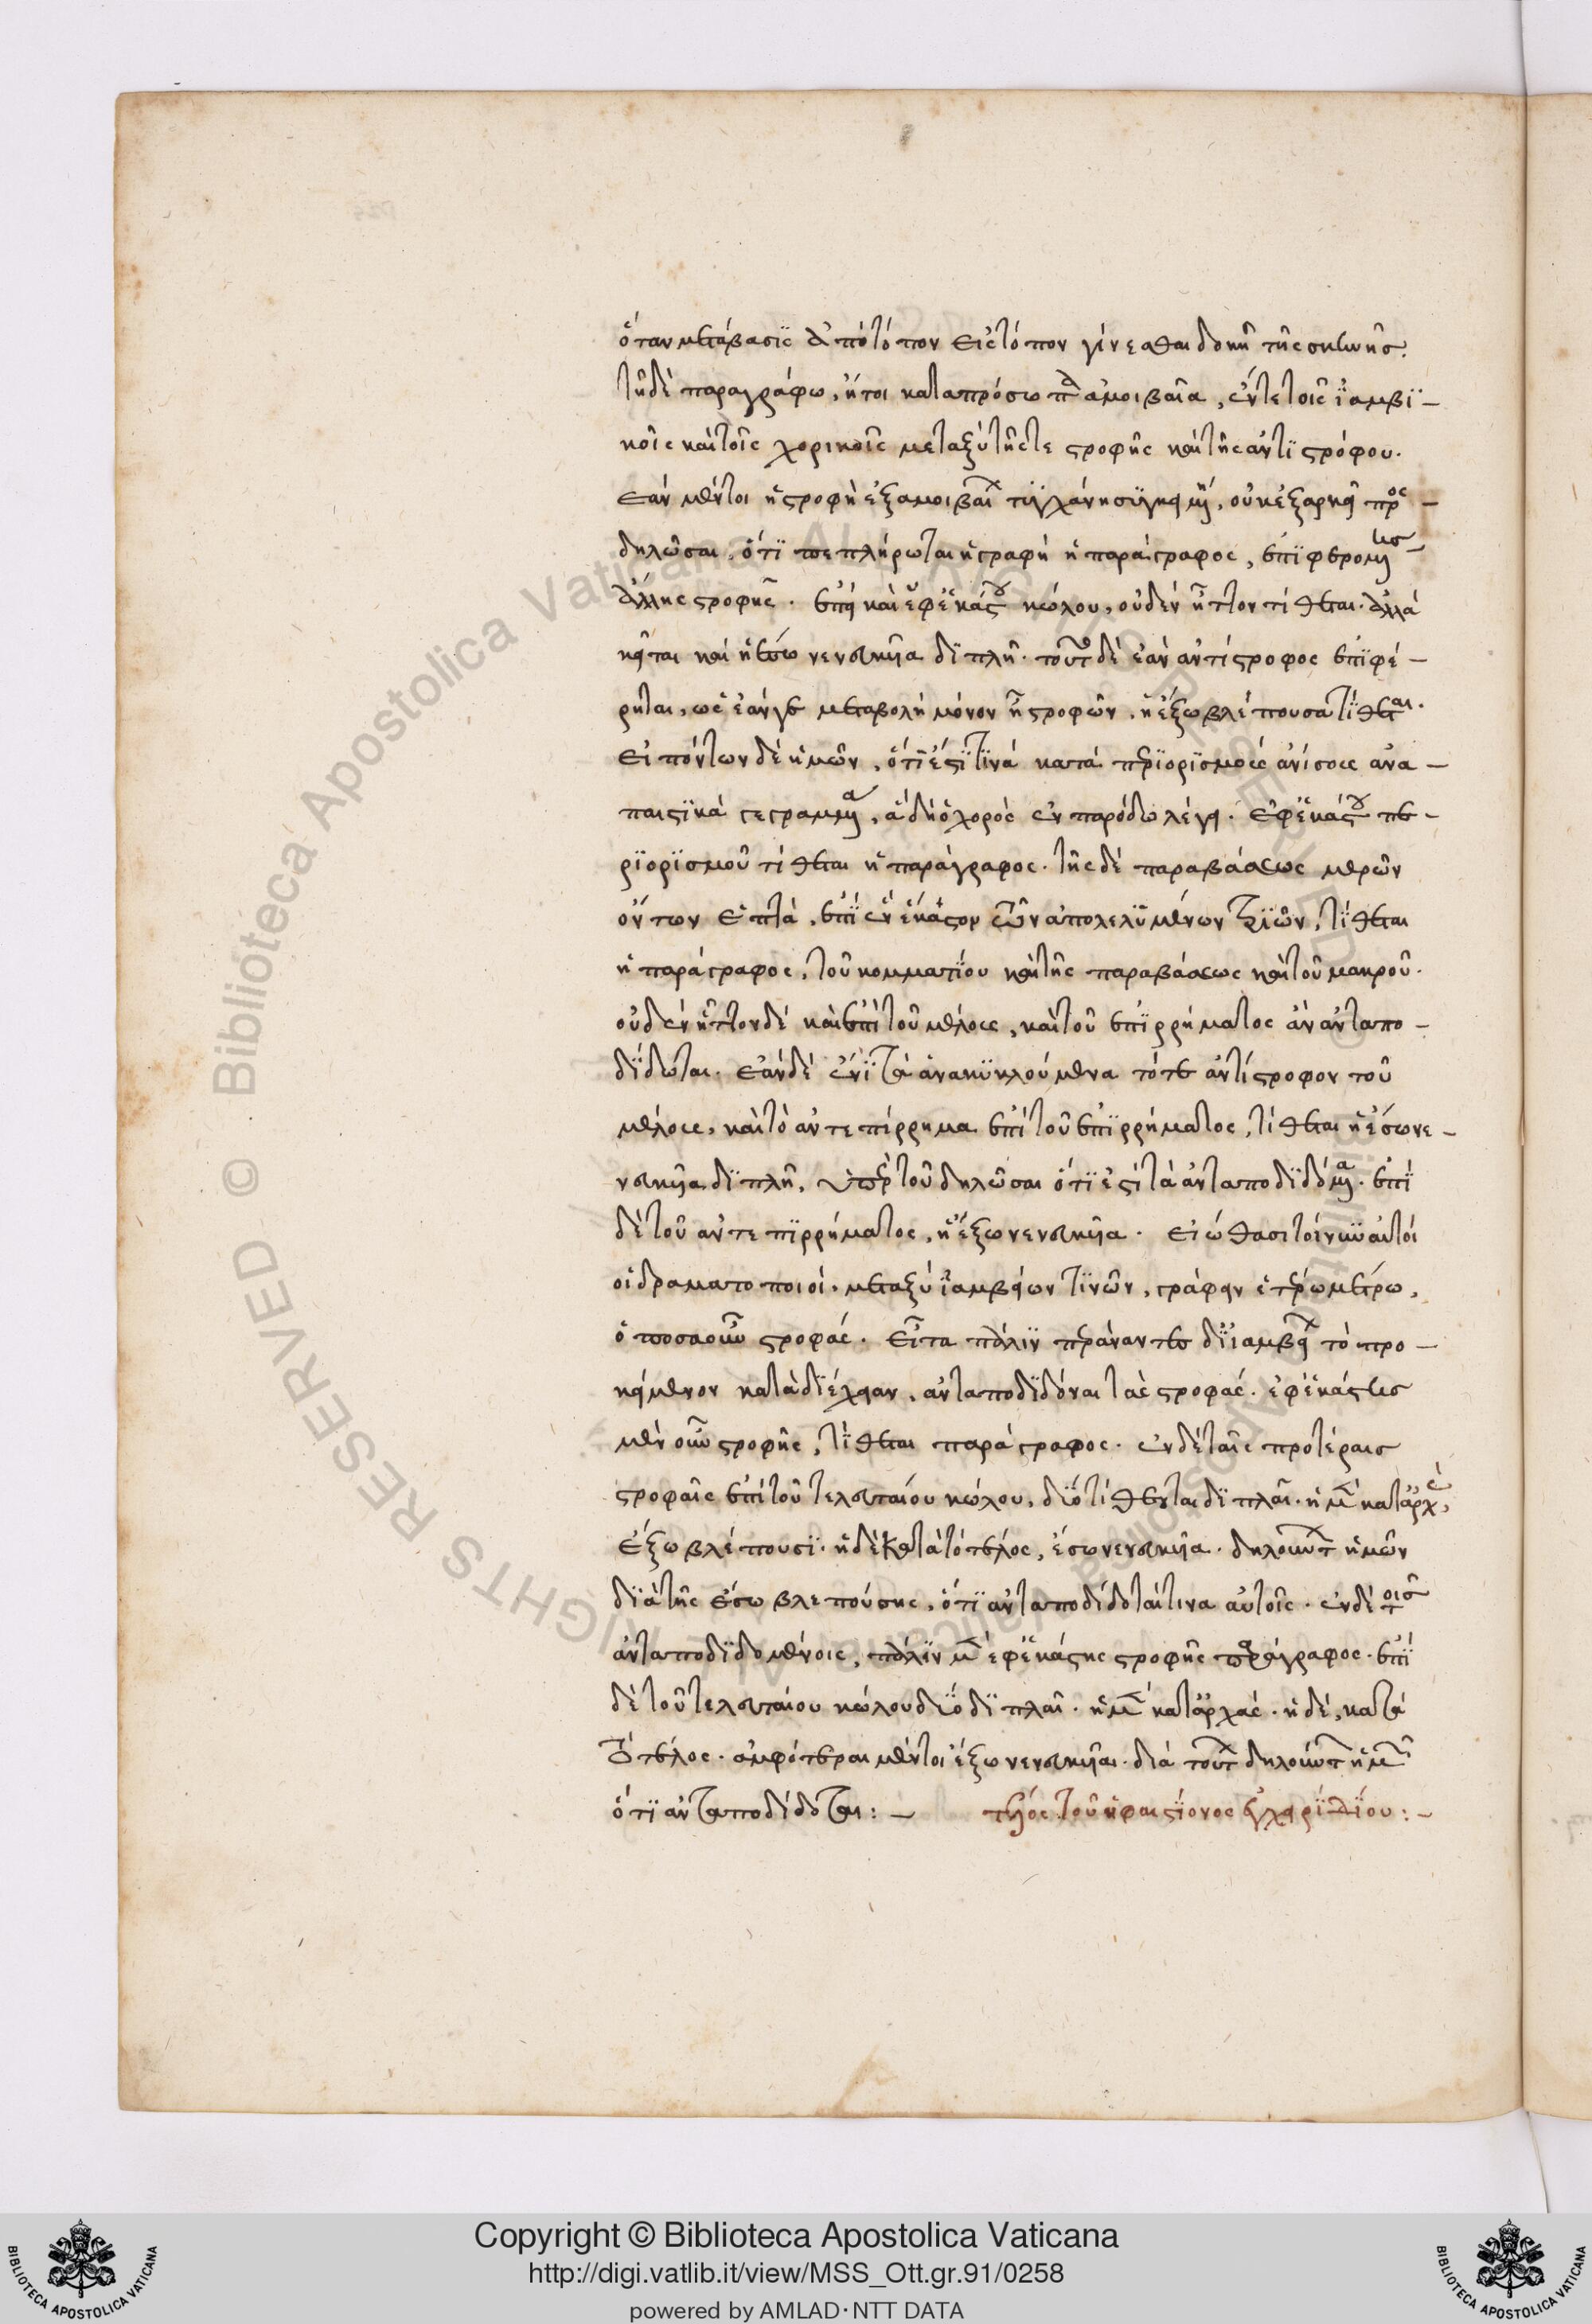 ὅταν μετάβασις ἀπὸ τόπον εἰς τόπον γίνεσθαι δοκῆ τῆς σκηνῆς.
τῆ δὲ παραγράφω, ἤτοι κατα πρόσωπα ἀμοιβαῖα, ἔν τε τοῖς ἰαμβι-
κοῖς καὶ τοῖς χορικοῖς μεταξὺ τῆς τε στροφῆς καὶ τῆς ἀντιστρόφου.
ἐὰν μέντοι ἡ στροφὴ ἐξ αμοιβαί τυγχάνη συγκειμένη, οὐκ ἐξαρκεῖ πρὸς
δηλῶσαι, ὅτι πεπλήρωται ἡ γραφὴ ἡ παράγραφος, ἐπιφερομένης
ἄλλης στροφῆς. ἐπεὶ καὶ ἐφ' ἑκάστου κώλου, οὐδὲν ἧττον τίθεται. ἀλλὰ
κεῖται καὶ ἡ ἔσω νενευκυῖα διπλῆ. τοῦτο δὲ ἐὰν ἀντίστροφος ἐπιφέ-
ρηται, ὡς ἐάν γε μεταβολὴ μόνον ᾖ στροφῶν, ἡ ἔξω βλέπουσα τίθεται.
εἰπόντων δὲ ἡμῶν, ὅτι ἐστί τινὰ κατὰ περιορισμοὺς ἀνίσους ἀνα-
παιστικὰ γεγραμμένα, ἃ δὴ ὁ χορὸς ἐν παρόδω λέγει. ἐφ' ἑκάστου πε-
ριορισμοῦ τίθεται ἡ παράγραφος. τῆς δὲ παραβάσεως μερῶν
ὄντων ἑπτὰ, ἐπὶ ἓν ἕκαστον τῶν ἀπολελυμένων τριῶν, τίθεται
ἡ παράγραφος, τοῦ κομματίου καὶ τῆς παραβάσεως καὶ τοῦ μακροῦ.
οὐδὲν ἧττον δὲ καὶ ἐπὶ τοῦ μέλους, καὶ τοῦ ἐπιρρήματος ἂν ἀνταπο-
δίδωται. ἐὰν δὲ ἔνι τὰ ἀνακυκλούμενα τότε ἀντίστροφον τοῦ
μέλους, καὶ τὸ ἀντεπίρρημα ἐπὶ τοῦ ἐπιρρήματος, τίθεται ἡ ἔσω νε-
νευκυῖα διπλῆ, ὑπὲρ τοῦ δηλῶσαι ὅτι ἐστὶ τὰ ἀνταποδιδόμενα. ἐπὶ
δὲ τοῦ ἀντεπιρρήματος, ἡ ἔξω νενευκυῖα. εἰώθασι τοίνυν αὐτοὶ
οἱ δραματοποιοὶ, μεταξὺ ἰαμβείων τινῶν, γράφειν ἑτέρω μέτρω,
ὁποσαοῦν στροφάς. εἶτα πάλιν περάναντες δι' ἰαμβείων τὸ προ-
κείμενον κατὰ διέχειαν, ἀνταποδιδόναι τὰς στροφάς. ἐφ' ἑκάστης
μὲν οὖν στροφῆς, τίθεται παράγραφος. ἐν δὲ ταῖς προτέραις
στροφαῖς ἐπὶ τοῦ τελευταίου κώλου, δύο τίθενται διπλαῖ. ἡ μὲν κατ' ἀρχὰς
ἔξω βλέπουσι. ἡ δὲ κατὰ τὸ τέλος, ἔσω νενευκυῖα. δηλοῦντων ἡμῶν
διὰ τῆς ἔσω βλεπούσης, ὅτι ἀνταποδίδοταί τινα αὐτοῖς. ἐν δὲ τοῖς
ἀνταποδιδομένοις, πάλιν μὲν ἐφ' ἑκάστης στροφῆς παράγραφος. ἐπὶ
δὲ τοῦ τελευταίου κώλου δύο διπλαῖ. ἡ μὲν κατ' ἀρχάς. ἡ δὲ, κατὰ
τὸ τέλος. ἀμφότεραι μέντοι ἔξω νενευκυῖαι. διὰ τούτων δηλούντων ἡμῖν
ὅτι ἀνταποδίδοται:- τέλος τοῦ ἡφαιστίονος ἐγχειριδίου:-
Copyright © Biblioteca Apostolica Vaticana
http://digi.vatlib.it/view/MSS_Ott.gr.91/0258
powered by AMLAD·NTT DATA